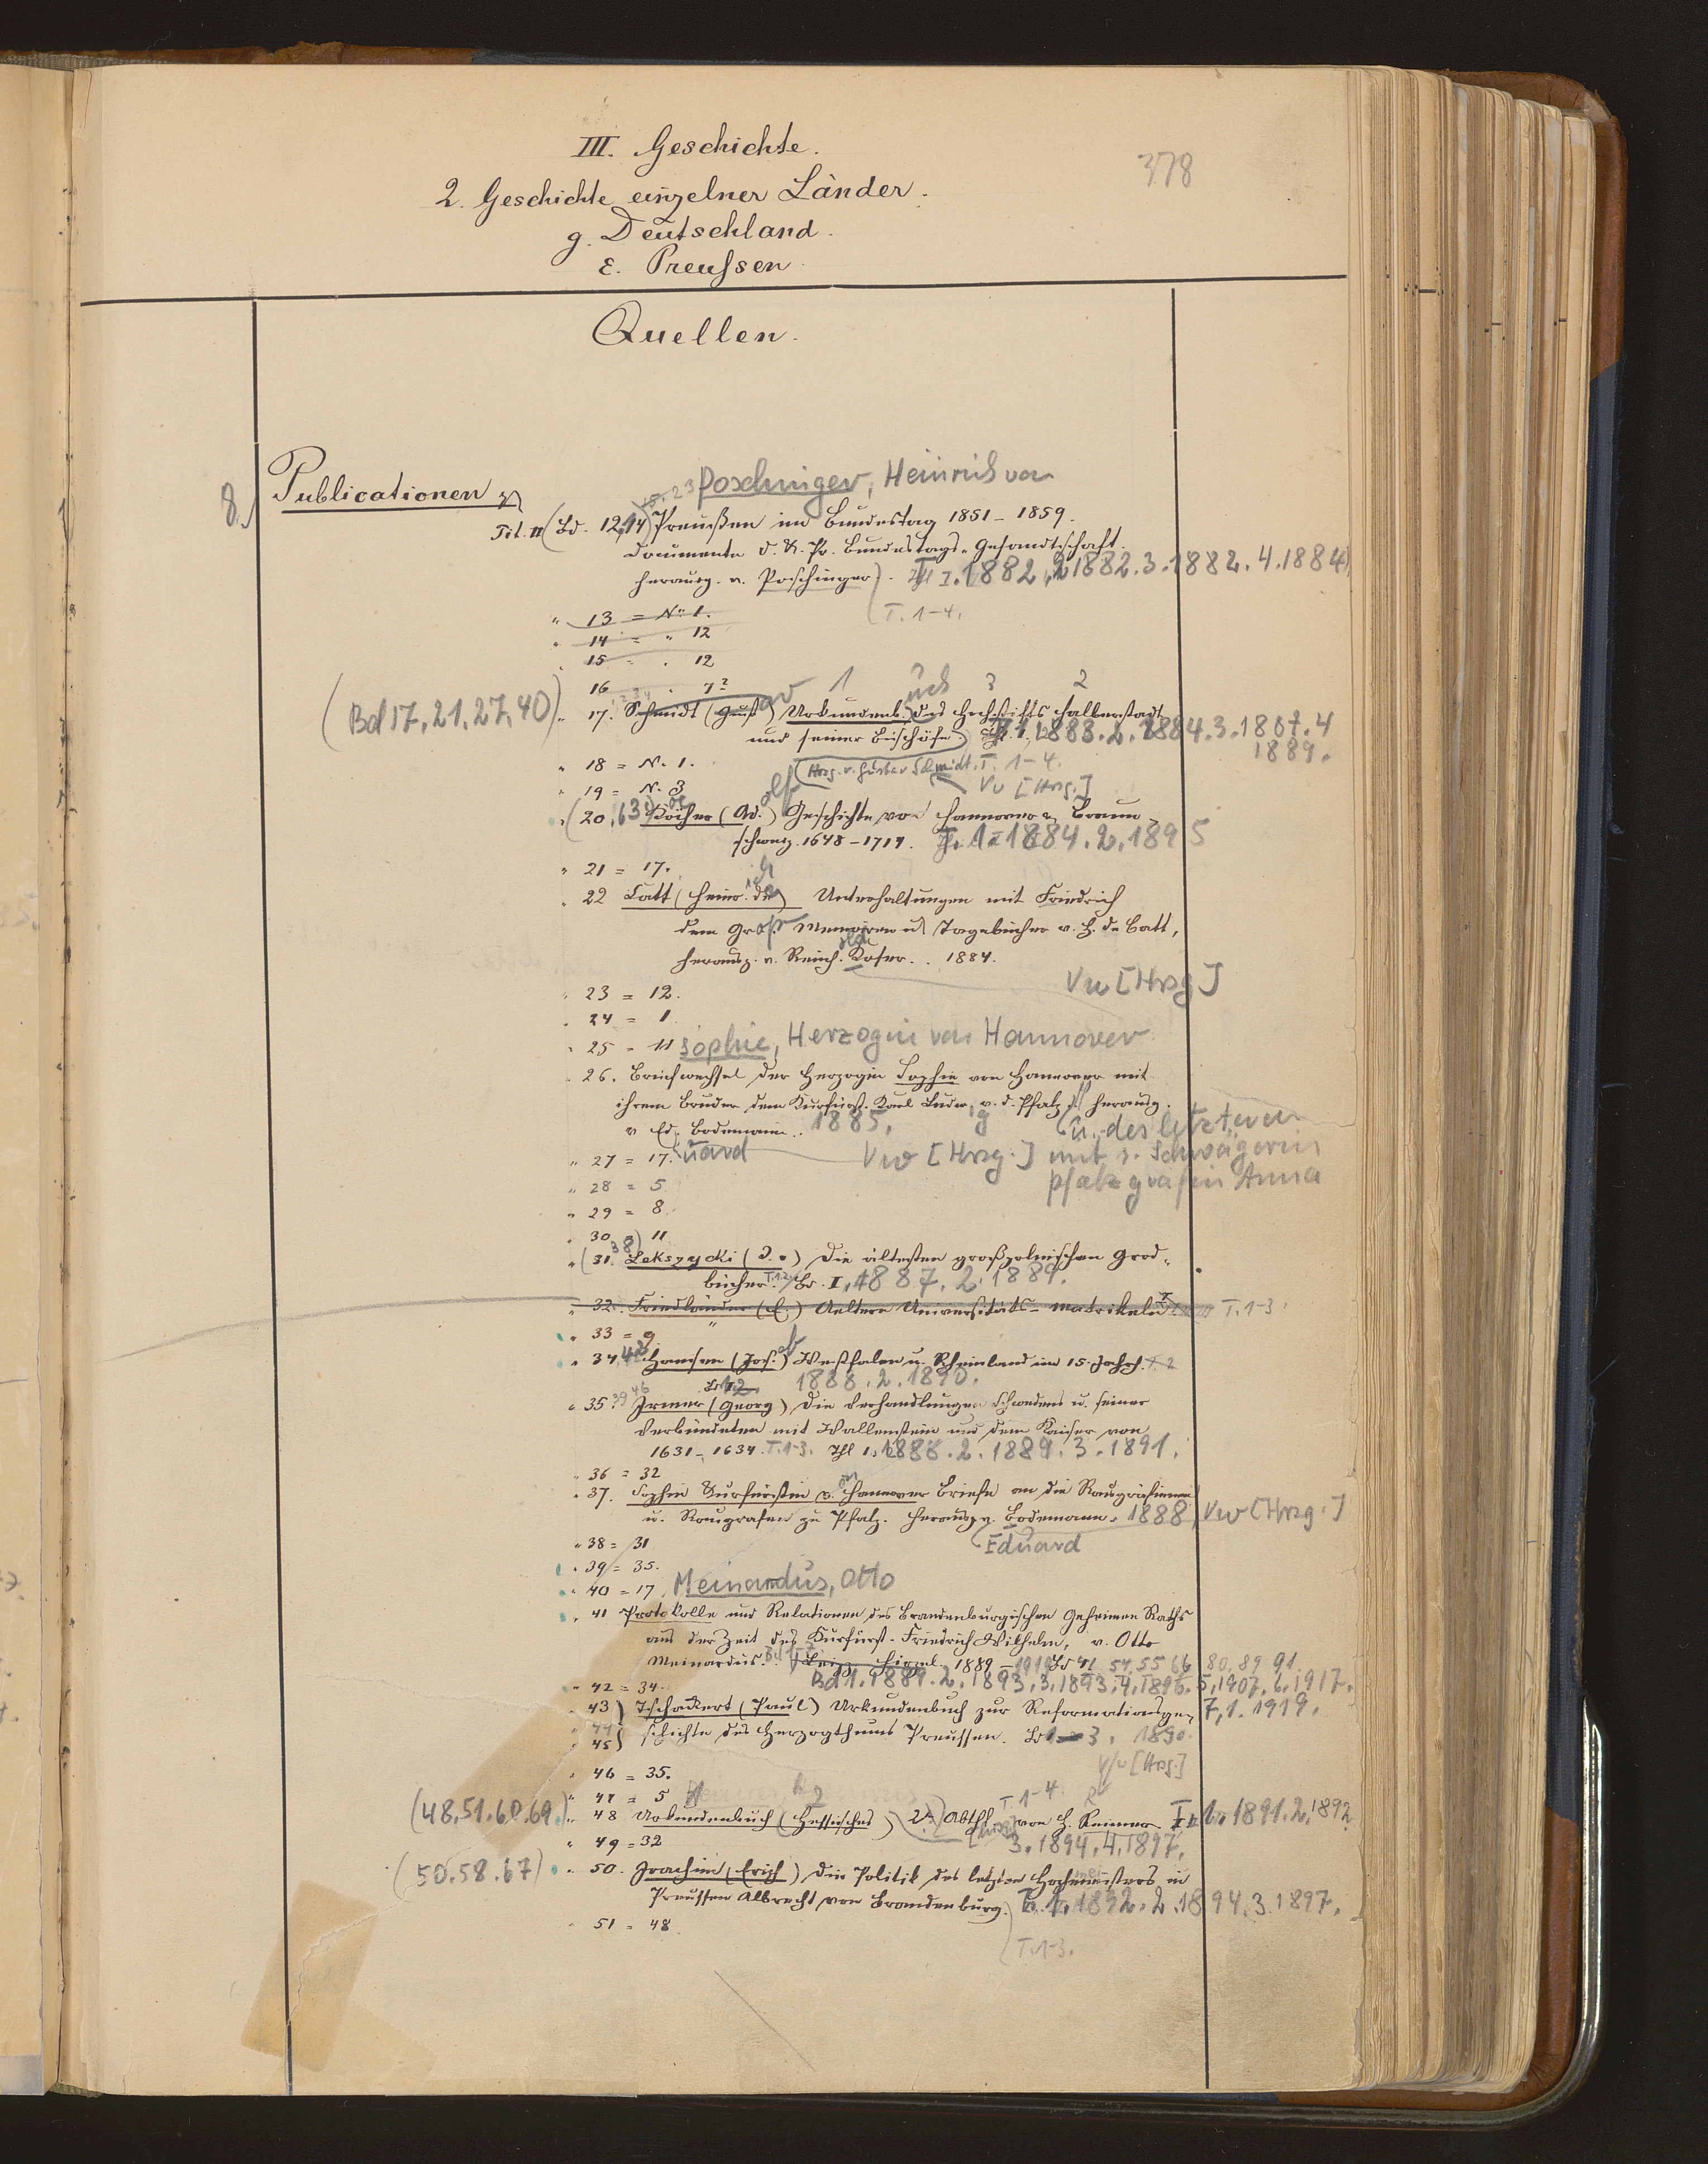 III. Geschichte.
378
2. Geschichte einzelner Länder.
g. Deutschland.
ε. Preußen.
Quellen.
8.
Publicationen
Poschinger, Heinrich von
Tit. II (Bd. 12, 14) Preußen im Bundestag 1851-1859.
Documente d. K. Pr. Bundestags-Gesandtschaft.
herausg. v. Poschinger). 1.1882, 2 1882. 3. 1882. 4. 1884
(T. 1-4.
" 13 = No 1.
" 14 = " 12
15 = " 12
16 " 7?
(Bd 17, 21, 27, 40)
1 3 2
" 17. Schmidt (Gust) Urkundenb. des Hochstifts Halberstadt
und seiner Bischöfe 1. 1883. 2. 1884. 3. 1887. 4
1889.
" 18 = N. 1. (Hrsg. v. Gustav Schmidt. T. 1-4.
" 19 = N. 3 Vw [Hrsg.]
(20, 63) Köcher (Ad.) Geschichte von Hannover u. Braun-
schweig. 1648-1714. T. 1 = 1884. 2. 1895
" 21 = 17.
" 22 Catt (Heinr. de) Unterhaltungen mit Friedrich
dem Gr. Memoiren u. Tagebücher v. H. de Catt,
herausg. v. Reinh. Koser. 1884.
Vw [Hrsg]
" 23 = 12.
" 24 = 1
" 25 = 11 Sophie, Herzogin von Hannover
26. Briefwechsel der Herzogin Sophie von Hannover mit
ihrem Bruder dem Kurfürst. Karl Ludw. v. d. Pfalz herausg.
v. Ed. Bodemann. 1885,
u. des letzteren
" 27 = 17. uard Vw [Hrsg.] mit s. Schwägerin
Pfalzgräfin Anna
" 28 = 5
" 29 = 8
" 30 = 11
" (31. 38) Lekszycki (J. v.) Die ältesten großpolnischen Grod-
bücher. Bd. I, 1887. 2. 1889.
" 32. Friedländer (E.) Aeltere Universitäts-Matrikeln T. 1-3
" 33 = 9
" 34, 42 Hansen (Jos.) Westfalen u. Rheinland im 15. Jahrh. T. 2
1888. 2. 1890.
" 35 39 46 Irmer (Georg) Die Verhandlungen Schwedens u. seiner
Verbündeten mit Wallenstein und dem Kaiser von
1631-1634. T. 1-3. Thl 1. 1888. 2. 1889. 3. 1891.
" 36 = 32
" 37. Sophie Kurfürstin v. Hannover Briefe an die Raugräfinnen
u. Raugrafen zu Pfalz. Herausg. v. Bodemann. 1888, Vw [Hrsg.]
Eduard
" 38 = 31
" 39 = 35.
" 40 = 17 Meinardus, Otto
" 41 Protokolle und Relationen des Brandenburgischen Geheimen Raths
aus der Zeit des Kurfürst. Friedrich Wilhelm, v. Otto
Meinardus. Leipz. Hirzel. 1889 - 1919 Bd 41 54. 55 66 80. 89. 91
Bd 1. 1889. 2. 1893, 3. 1893. 4. 1896. 5, 1907, 6. 1917.
" 42 = 34.
7, 1. 1919.
" 43) Tschackert (Paul) Urkundenbuch zur Reformationsge-
" 44) schichte des Herzogthums Preussen. Bd 1-3. 1890.
" 45)
Vw [Hrsg.]
" 46 = 35.
" 47 = 5 T. 1-4
(48. 51. 60. 69.) " 48 Urkundenbuch (Hessisches) 2. Abthl. von H. Reimer. 1. 1891. 2. 1892
" 49 = 32 3. 1894. 4. 1897.
(50. 58. 67) " 50. Joachim (Erich) Die Politik des letzten Hochmeisters in
Preussen Albrecht von Brandenburg. 1. 1892. 2. 1894. 3. 1897.
" 51 = 48
(T. 1-3.